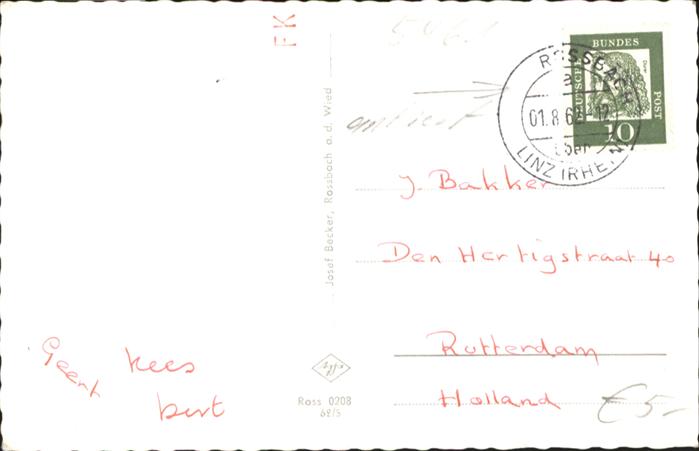 FK
DEUTSCHE
BUNDES
POST
Dürer
10
ROSSBACH
a
01.8.62-12
über
LINZ (RHEIN)
Josef Becker, Rossbach a. d. Wied
J. Bakker
Den Hertigstraat 40
Rotterdam
Holland
Geert kees
bert
Agfa
Ross 0208
62/5
€5-